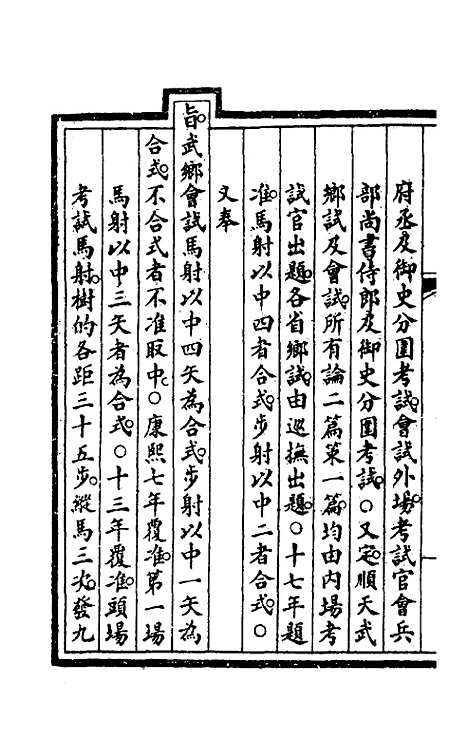 府丞及御史分圍考試。會試外場。考試官會兵
部尚書侍郎及御史分圍考試。○又定。順天武
鄉試及會試。所有論二篇策一篇。均由內場考
試官出題。各省鄉試。由巡撫出題。○十七年題
准。馬射以中四者合式。步射以中二者合式。○
又奉
旨。武鄉會試馬射以中四矢為合式。步射以中一矢為
合式。不合式者不准取中。○康熙七年覆准。第一場
馬射以中三矢者為合式。○十三年覆准。頭場
考試馬射。樹的各距三十五步。縱馬三次。發九